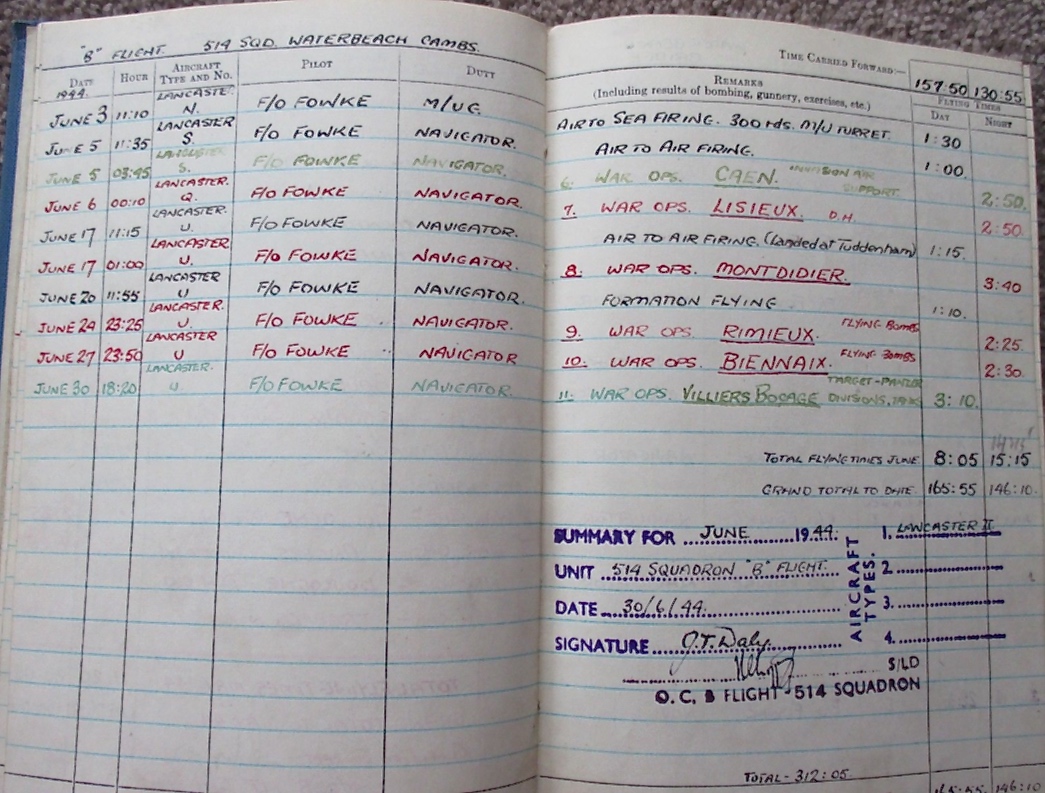 "B" FLIGHT. 514 SQD. WATERBEACH CAMBS.
DATE HOUR AIRCRAFT TYPE AND NO. PILOT DUTY
1944.
JUNE 3 11:10 LANCASTER N. F/O FOWKE M/UG.
JUNE 5 11:35 LANCASTER S. F/O FOWKE NAVIGATOR.
JUNE 5 03:45 LANCASTER S. F/O FOWKE NAVIGATOR.
JUNE 6 00:10 LANCASTER. Q. F/O FOWKE NAVIGATOR.
JUNE 17 11:15 LANCASTER. U. F/O FOWKE NAVIGATOR.
JUNE 17 01:00 LANCASTER U. F/O FOWKE NAVIGATOR.
JUNE 20 11:55 LANCASTER U F/O FOWKE NAVIGATOR.
JUNE 24 23:25 LANCASTER. U. F/O FOWKE NAVIGATOR.
JUNE 27 23:50 LANCASTER U F/O FOWKE NAVIGATOR
JUNE 30 18:20 LANCASTER. U. F/O FOWKE NAVIGATOR.
TIME CARRIED FORWARD:— 157:50 130:55
REMARKS
(Including results of bombing, gunnery, exercises, etc.)
FLYING TIMES
DAY NIGHT
AIR TO SEA FIRING. 300 rds. M/U TURRET. 1:30
AIR TO AIR FIRING. 1:00
6. WAR OPS. CAEN. INVASION AIR SUPPORT 2:50.
7. WAR OPS. LISIEUX. D.H. 2:50
AIR TO AIR FIRING. (Landed at Tuddenham) 1:15.
8. WAR OPS. MONTDIDIER. 3:40
FORMATION FLYING 1:10.
9. WAR OPS. RIMIEUX. FLYING BOMBS 2:25
10. WAR OPS. BIENNAIX. FLYING BOMBS 2:30
11. WAR OPS. VILLIERS BOCAGE TARGET-PANZER DIVISIONS, TANKS 3:10.
TOTAL FLYING TIMES JUNE 8:05 15:15
GRAND TOTAL TO DATE. 165:55 146:10.
SUMMARY FOR JUNE 1944.
UNIT 514 SQUADRON "B" FLIGHT.
DATE 30/6/44.
SIGNATURE J.T. Daly
AIRCRAFT TYPES.
1. LANCASTER II
2
3.
4.
S/LD
O. C. B FLIGHT - 514 SQUADRON
TOTAL - 312:05.
165:55. 146:10